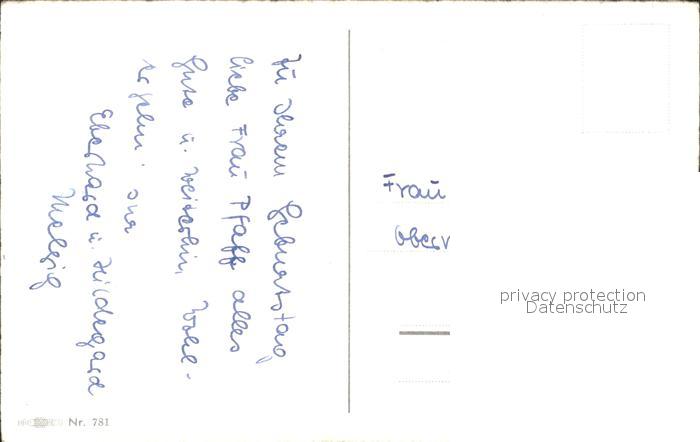 Zu Ihrem Geburtstag,
liebe Frau Pfaff alles
Gute u. weiterhin, Wohl-
ergehn' Ihr
Eberhard u. Hildegard
Frau
Oberv
privacy protection
Datenschutz
Nr. 781